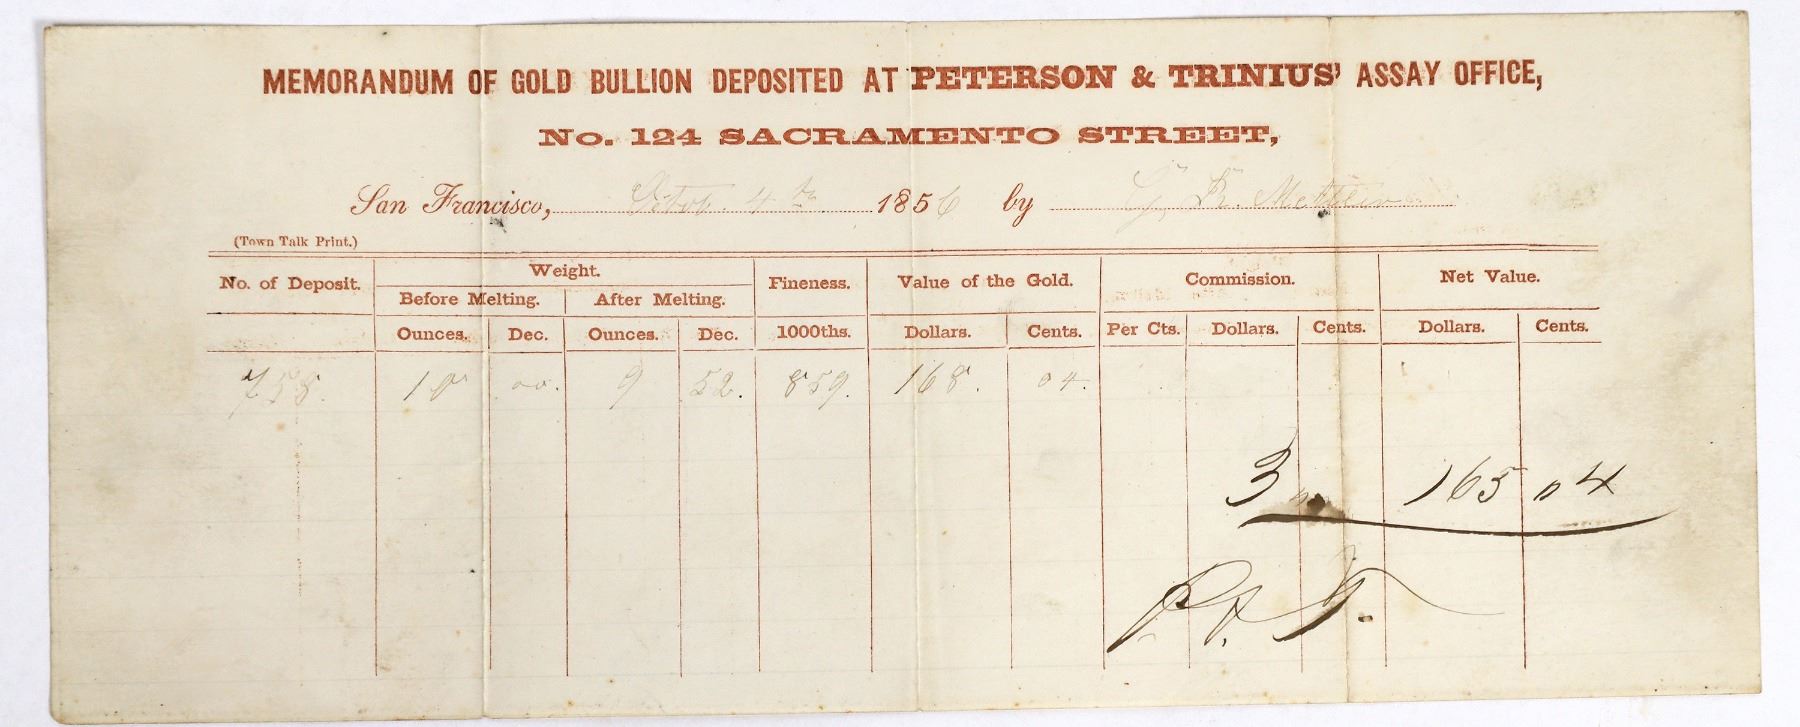 MEMORANDUM OF GOLD BULLION DEPOSITED AT PETERSON & TRINIUS' ASSAY OFFICE,
No. 124 SACRAMENTO STREET,
San Francisco, Octob. 4th 1856 by G. R.
(Town Talk Print.)
No. of Deposit. Weight. Fineness. Value of the Gold. Commission. Net Value.
Before Melting. After Melting.
Ounces. Dec. Ounces. Dec. 1000ths. Dollars. Cents. Per Cts. Dollars. Cents. Dollars. Cents.
758. 10 00. 9 52. 859. 168. 04.
3 165 04